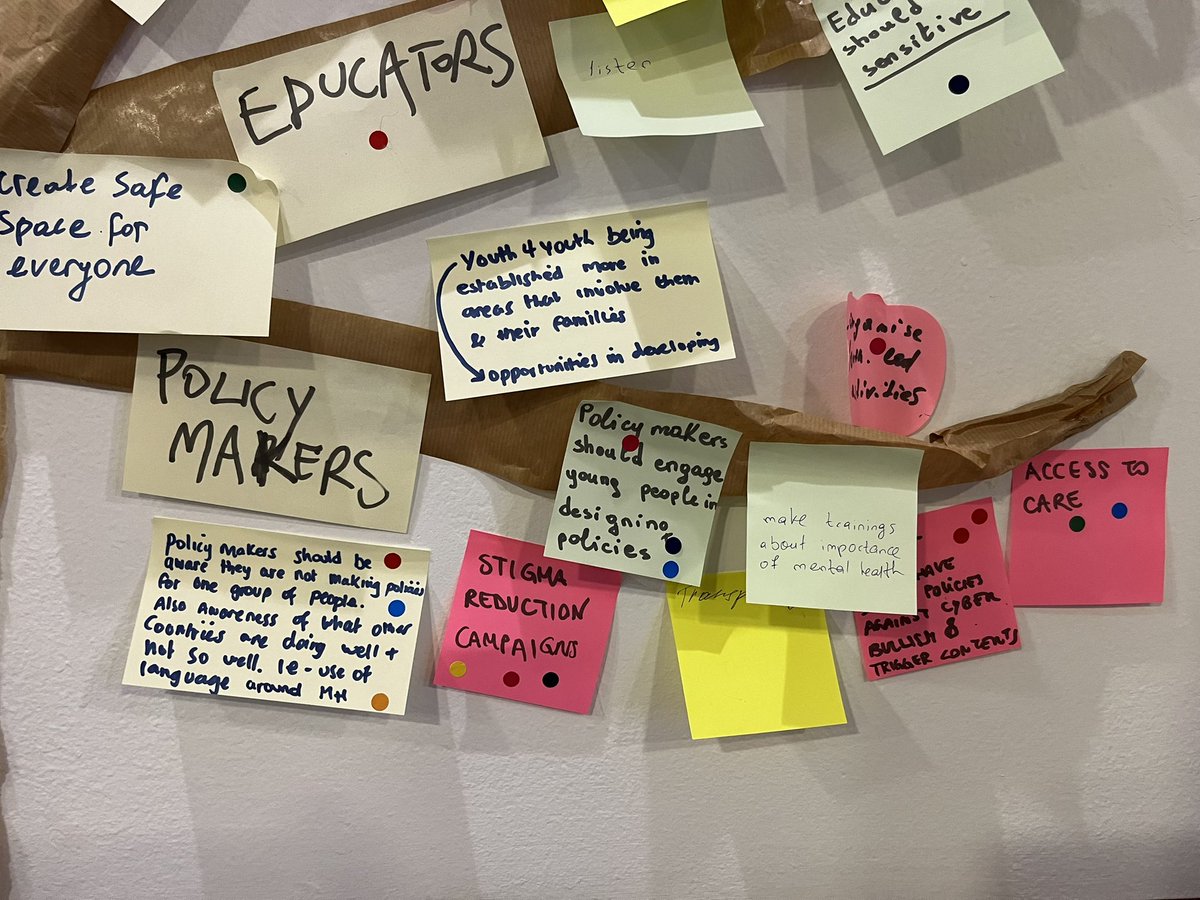 EDUCATORS
listen
should
sensitive
create Safe
Space for
everyone
Youth 4 Youth being
established more in
areas that involve them
& their families
opportunities in developing
POLICY
MAKERS
organise
led
activities
Policy makers
should engage
young people in
designing
policies
make trainings
about importance
of mental health
ACCESS TO
CARE
Policy makers should be
aware they are not making policies
for one group of people.
Also Awareness of what other
Countries are doing well +
not so well. Ie - use of
language around MH
STIGMA
REDUCTION
CAMPAIGNS
HAVE
POLICIES
AGAINST CYBER
BULLISM &
TRIGGER CONTENTS